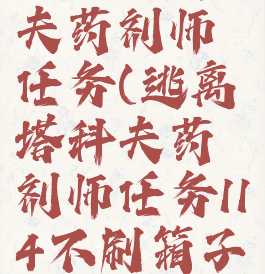 夫药剂师
任务(逃离
塔科夫药
剂师任务11
4不刷箱子